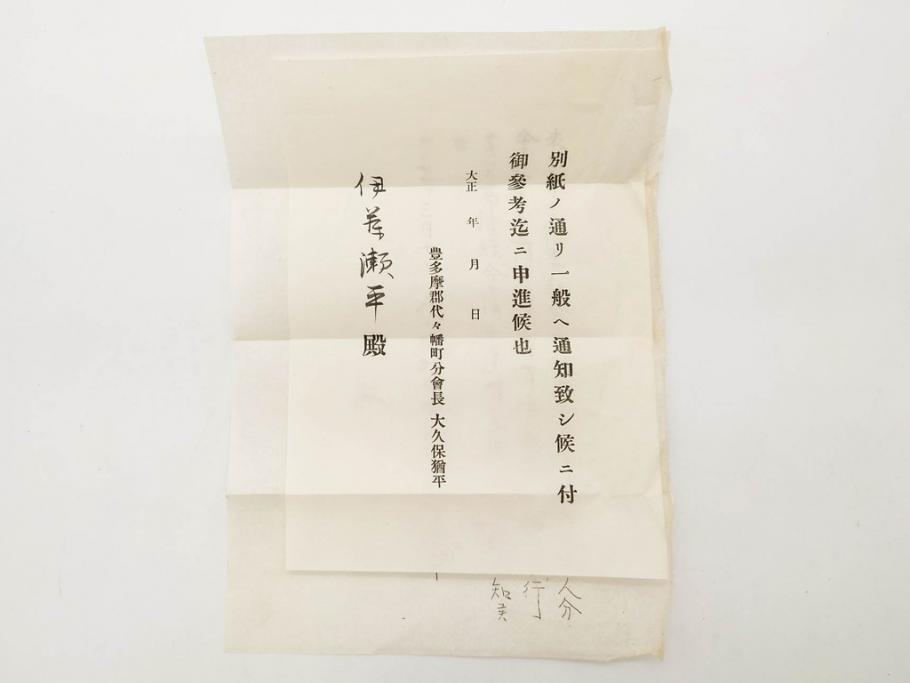 別紙ノ通リ一般ヘ通知致シ候ニ付
御參考迄ニ申進候也
大正 年 月 日
豊多摩郡代々幡町分會長 大久保猶平
伊藤瀬平殿
人分
行
知